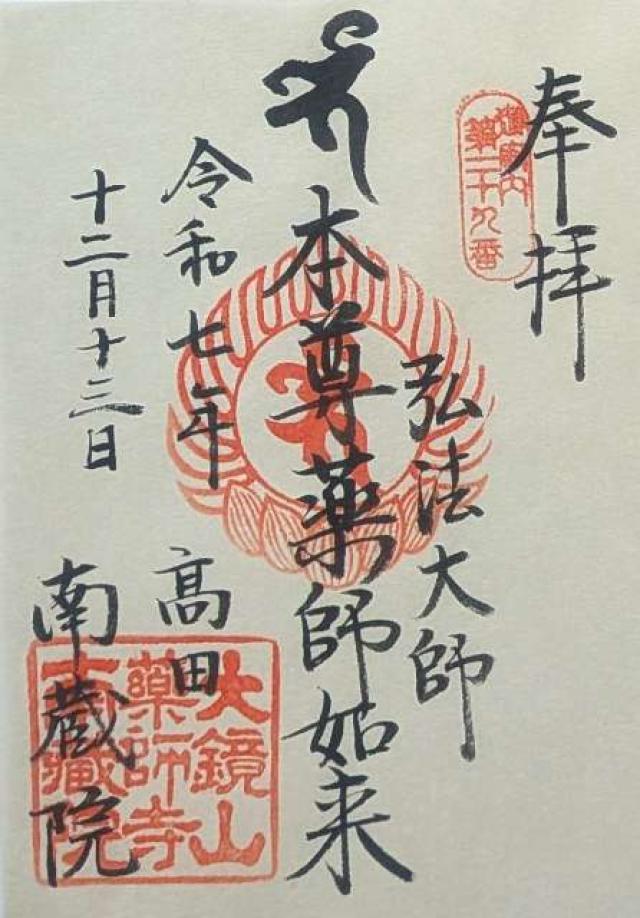 奉拝
第二十九番
弘法大師
本尊薬師如来
令和七年
十二月十三日
高田
南蔵院
大鏡山
薬師寺
南蔵院